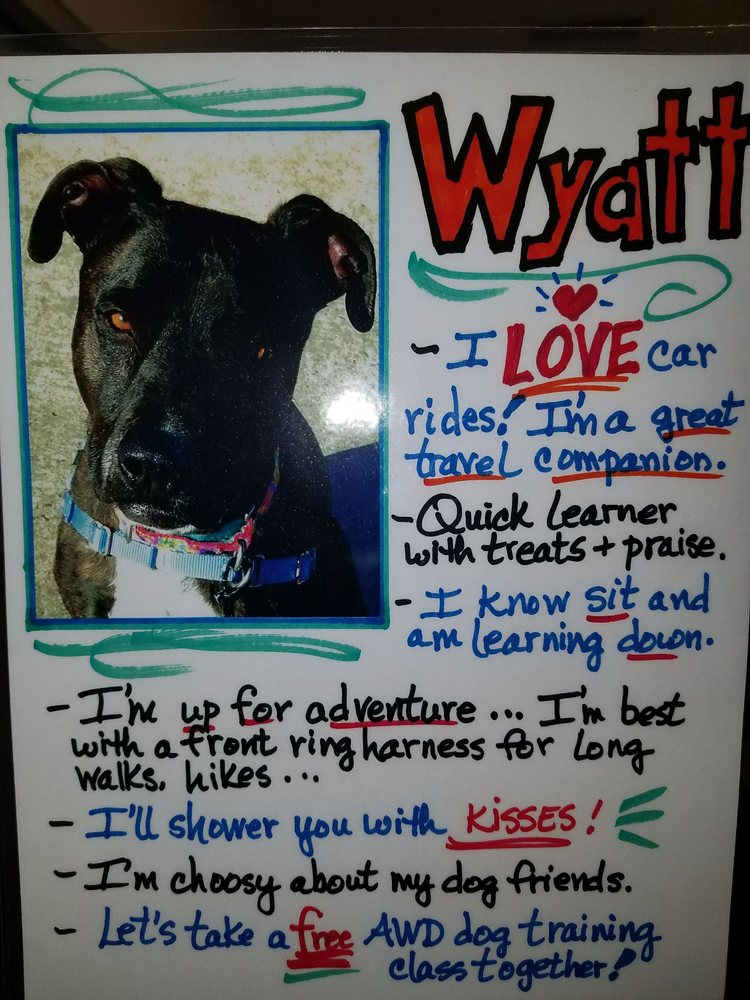 Wyatt
- I LOVE car
rides! I'm a great
travel companion.
- Quick learner
with treats + praise.
- I know sit and
am learning down.
- I'm up for adventure ... I'm best
with a front ring harness for long
walks, hikes ...
- I'll shower you with KISSES!
- I'm choosy about my dog friends.
- Let's take a free AWD dog training
class together!